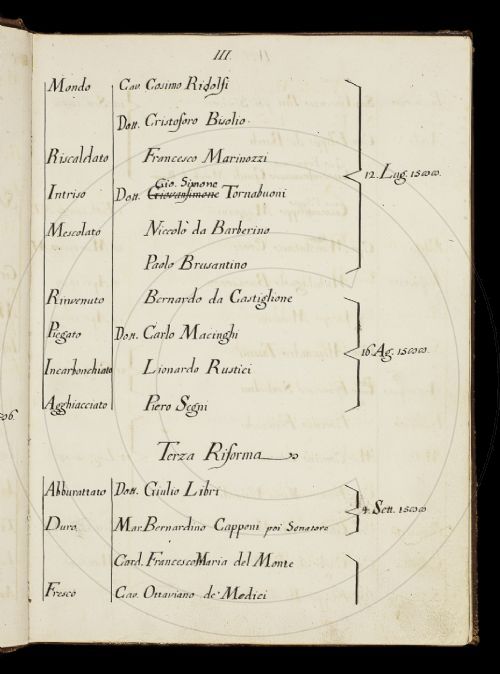 III.
Mondo Cav. Cosimo Ridolfi
Dott. Cristoforo Bisolio.
Riscaldato Francesco Marinozzi 12. Lug.
Gio. Simone
Intriso Dott. Giovansimone Tornabuoni
Mescolato Niccolò da Barberino
Paolo Brusantino
Rinvenuto Bernardo da Castiglione
Piegato Dott. Carlo Macinghi
16. Ag.
Incarbonchiato Lionardo Rustici
Agghiacciato Piero Segni
Terza Riforma
Abburattato Dott. Giulio Libri
4. Sett.
Duro Mar. Bernardino Capponi poi Senatore
Card. Francesco Maria del Monte
Fresco Cav. Ottaviano de' Medici